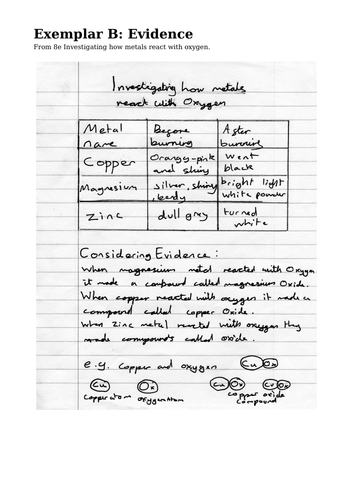 Exemplar B: Evidence
From 8e Investigating how metals react with oxygen.
Investigating how metals
react with Oxygen
Metal name Before burning After burning
Copper Orangy-pink and shiny went black
Magnesium silver, shiny, bendy bright light white powder
Zinc dull grey turned white
Considering Evidence:
When magnesium metal reacted with Oxygen
it made a compound called magnesium Oxide.
When copper reacted with oxygen it made a
compound called copper Oxide.
When Zinc metal reacted with oxygen they
made compounds called oxide.
e.g. Copper and oxygen Cu Ox
Cu Ox Cu Ox Cu Ox
Copper atom oxygen Atom copper oxide
compound